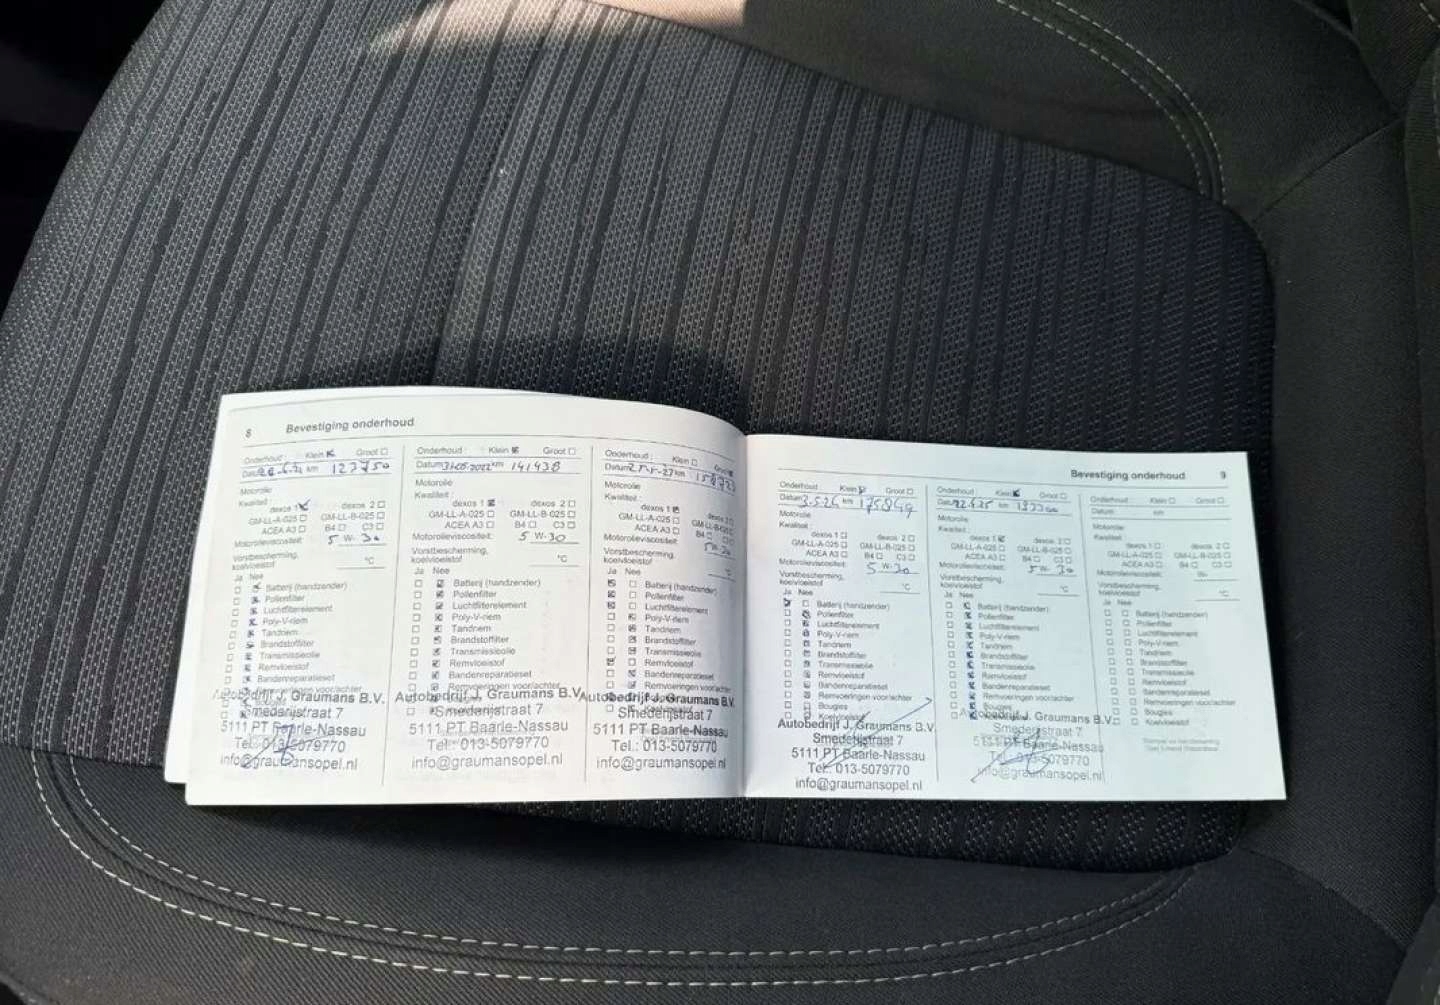 8 Bevestiging onderhoud
Onderhoud : Klein Groot
Datum km 127750
Motorolie
Kwaliteit : dexos 1 dexos 2
GM-LL-A-025 GM-LL-B-025
ACEA A3 B4 C3
Motorolieviscositeit: 5 W- 30
Vorstbescherming,
koelvloeistof °C
Ja Nee
Batterij (handzender)
Pollenfilter
Luchtfilterelement
Poly-V-riem
Tandriem
Brandstoffilter
Transmissieolie
Remvloeistof
Bandenreparatieset
Autobedrijf J. Graumans B.V.
Smederijstraat 7
5111 PT Baarle-Nassau
Tel.: 013-5079770
info@graumansopel.nl
Onderhoud : Klein Groot
Datum 31-05-2022 km 141438
Motorolie
Kwaliteit : dexos 1 dexos 2
GM-LL-A-025 GM-LL-B-025
ACEA A3 B4 C3
Motorolieviscositeit: 5 W- 30
Vorstbescherming,
koelvloeistof °C
Ja Nee
Batterij (handzender)
Pollenfilter
Luchtfilterelement
Poly-V-riem
Tandriem
Brandstoffilter
Transmissieolie
Remvloeistof
Bandenreparatieset
Remvoeringen voor/achter
Autobedrijf J. Graumans B.V.
Smederijstraat 7
5111 PT Baarle-Nassau
Tel.: 013-5079770
info@graumansopel.nl
Onderhoud : Klein
Datum km
Motorolie
Kwaliteit :
dexos 1 dexos 2
GM-LL-A-025 GM-LL-B-025
ACEA A3 B4 C3
Motorolieviscositeit: 5W-30
Vorstbescherming,
koelvloeistof °C
Ja Nee
Batterij (handzender)
Pollenfilter
Luchtfilterelement
Poly-V-riem
Tandriem
Brandstoffilter
Transmissieolie
Remvloeistof
Bandenreparatieset
Remvoeringen voor/achter
Autobedrijf J. Graumans B.V.
Smederijstraat 7
5111 PT Baarle-Nassau
Tel.: 013-5079770
info@graumansopel.nl
Bevestiging onderhoud 9
Onderhoud : Klein Groot
Datum 3.5.24 km 175849
Motorolie
Kwaliteit :
dexos 1 dexos 2
GM-LL-A-025 GM-LL-B-025
ACEA A3 B4 C3
Motorolieviscositeit: 5 W- 30
Vorstbescherming,
koelvloeistof °C
Ja Nee
Batterij (handzender)
Pollenfilter
Luchtfilterelement
Poly-V-riem
Tandriem
Brandstoffilter
Transmissieolie
Remvloeistof
Bandenreparatieset
Remvoeringen voor/achter
Bougies
Koelvloeistof
Autobedrijf J. Graumans B.V.
Smederijstraat 7
5111 PT Baarle-Nassau
Tel.: 013-5079770
info@graumansopel.nl
Onderhoud : Klein Groot
Datum km
Motorolie
Kwaliteit :
dexos 1 dexos 2
GM-LL-A-025 GM-LL-B-025
ACEA A3 B4 C3
Motorolieviscositeit: 5 W- 30
Vorstbescherming,
koelvloeistof °C
Ja Nee
Batterij (handzender)
Pollenfilter
Luchtfilterelement
Poly-V-riem
Tandriem
Brandstoffilter
Transmissieolie
Remvloeistof
Bandenreparatieset
Remvoeringen voor/achter
Bougies
Autobedrijf J. Graumans B.V.
Smederijstraat 7
5111 PT Baarle-Nassau
Tel.: 013-5079770
info@graumansopel.nl
Onderhoud : Klein Groot
Datum km
Motorolie
Kwaliteit :
dexos 1 dexos 2
GM-LL-A-025 GM-LL-B-025
ACEA A3 B4 C3
Motorolieviscositeit: W-
Vorstbescherming,
koelvloeistof °C
Ja Nee
Batterij (handzender)
Pollenfilter
Luchtfilterelement
Poly-V-riem
Tandriem
Brandstoffilter
Transmissieolie
Remvloeistof
Bandenreparatieset
Remvoeringen voor/achter
Bougies
Koelvloeistof